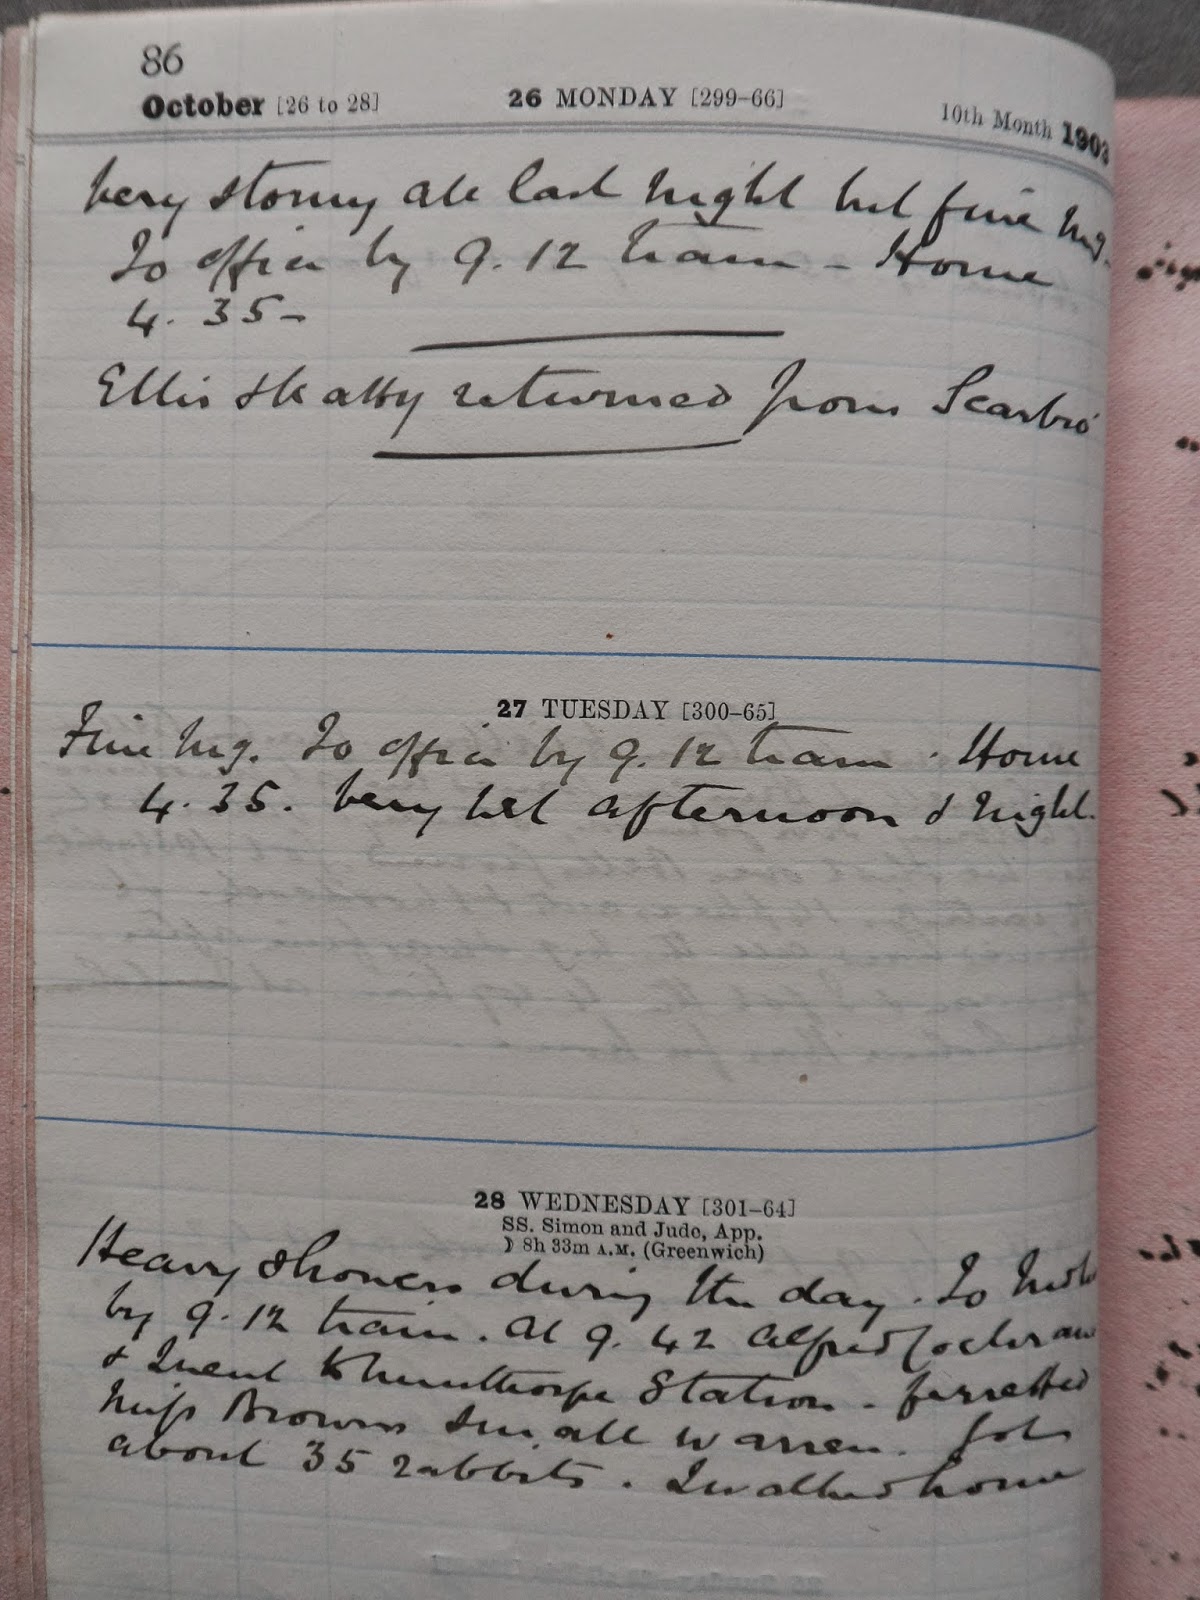 86
October [26 to 28]
26 MONDAY [299-66]
10th Month 1903
Very stormy all last night but fine mg.
To office by 9.12 train - Home
4.35-
Ellis & Katty returned from Scarbro'
27 TUESDAY [300-65]
Fine mg. To office by 9.12 train. Home
4.35. Very wet afternoon & night.
28 WEDNESDAY [301-64]
SS. Simon and Jude, App.
☽ 8h 33m A.M. (Greenwich)
Heavy showers during the day. To
by 9.12 train. At 9.42 Alfred Cochrane
& I went to Station - ferretted
Miss Browns small warren. Got
about 35 rabbits. I walked home